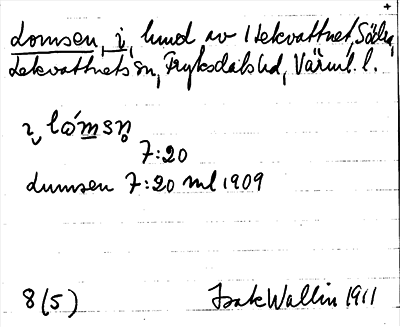 Lomsen, i, hmd av 1 Lekvattnet, Södra,
Lekvattnets sn, Fryksdals hd, Värml. l.
i lómsn̥
7:20
Lumsen 7:20 ml 1909
8 (5) Isak Wallin 1911